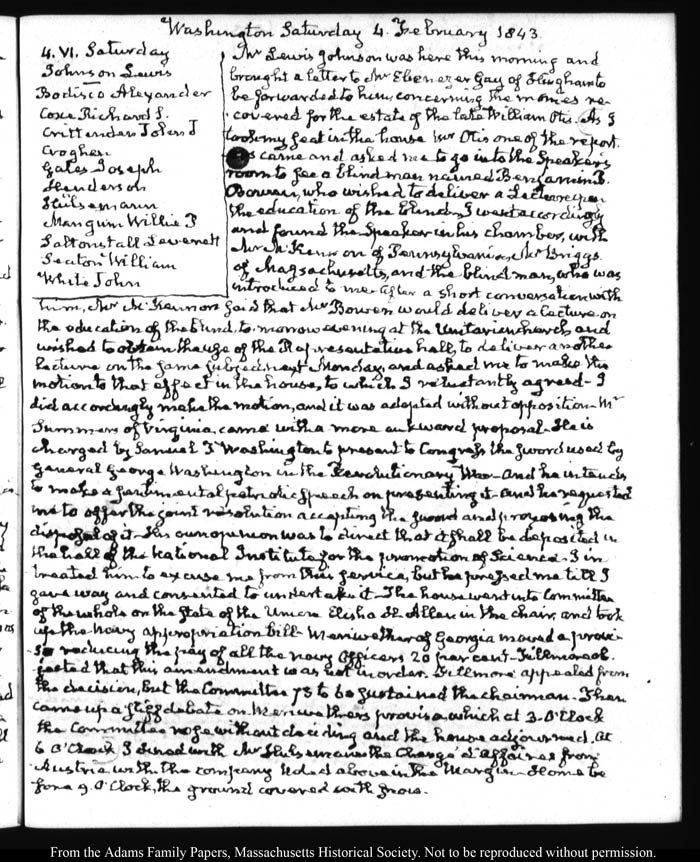 Washington Saturday 4. February 1843.
4. VI. Saturday
Johnson Lewis
Bodisco Alexander
Coxe Richard S.
Crittenden John J
Croghan
Gales Joseph
Henderson
Hulsemann
Mangum Willie P
Saltonstall Leverett
Seaton William
White John
Mr Lewis Johnson was here this morning and
brought a letter to Mr Ebenezer Gay of Hingham to
be forwarded to him, concerning the monies re-
covered for the estate of the late William Otis. As I
took my seat in the house Mr Otis one of the report-
ers came and asked me to go into the Speakers
room to see a blind man named Benjamin B.
Bowen, who wished to deliver a Lecture upon
the education of the blind. I went accordingly
and found the Speaker in his chamber, with
Mr McKennon of Pennsylvania, Mr Briggs
of Massachusetts, and the blind man, who was
introduced to me. After a short conversation with
him, Mr McKennon said that Mr Bowen would deliver a lecture on
the education of the blind, to-morrow evening at the Unitarian church, and
wished to obtain the use of the Representative hall, to deliver another
lecture on the same subject next Monday, and asked me to make the
motion to that effect in the house, to which I reluctantly agreed— I
did accordingly make the motion, and it was adopted without opposition— Mr
Summers of Virginia, came with a more awkward proposal. He is
charged by Samuel T Washington to present to Congress the sword used by
General George Washington in the Revolutionary War— and he intends
to make a sentimental patriotic speech on presenting it— and he requested
me to offer the joint resolution accepting the sword and proposing the
disposal of it. His own opinion was to direct that it shall be deposited in
the hall of the National Institute for the promotion of Science. I in-
treated him to excuse me from this service, but he pressed me till I
gave way and consented to undertake it— The house went into Committee
of the whole on the State of the Union Elisha H. Allen in the chair, and took
up the navy appropriation bill— Meriwether of Georgia moved a provi-
so reducing the pay of all the navy Officers 20 per cent— Fillmore ob-
jected that this amendment was not in order. Fillmore appealed from
the decision, but the Committee 78 to 60 sustained the chairman. Then
came up a stiff debate on Meriwethers proviso, which at 3. O'Clock
the Committee rose without deciding and the house adjourned. At
6 O'Clock I dined with Mr Hulsemann the Chargé d'Affaires from
Austria with the company noted above in the Margin— Home be-
fore 9. O'Clock, the ground covered with snow.
From the Adams Family Papers, Massachusetts Historical Society. Not to be reproduced without permission.